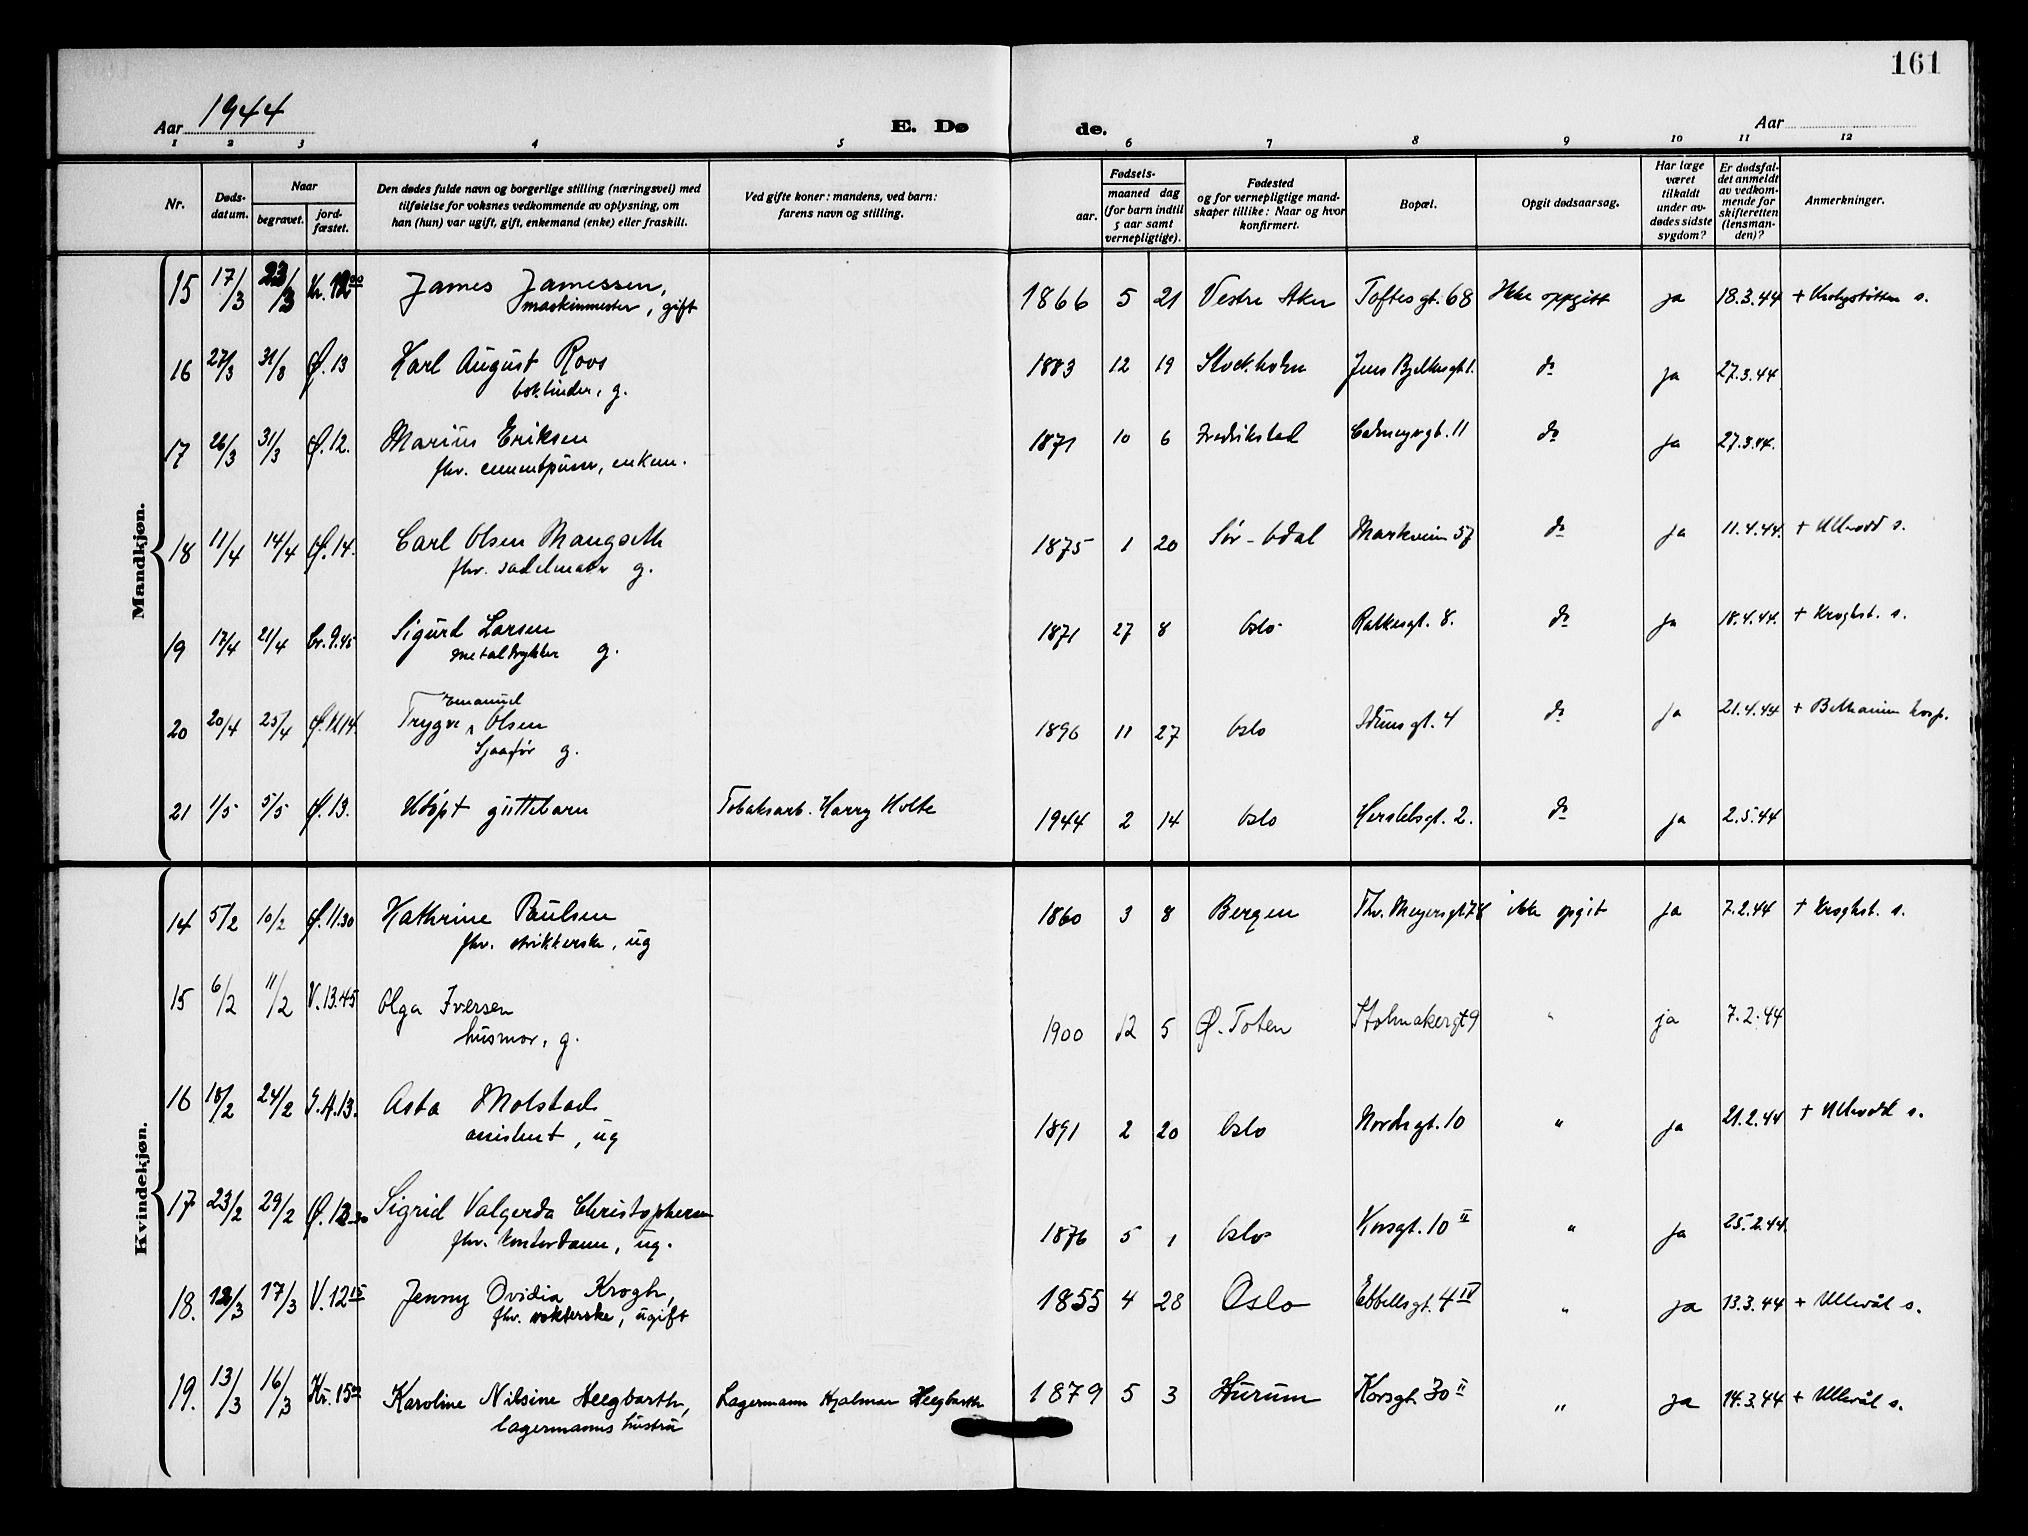 161
Aar 1944
E. Dø
de.
Aar
1 2 3 4 5 6 7 8 9 10 11 12
Nr.
Døds-
datum.
Naar
begravet.
jord-
fæstet.
Den dødes fulde navn og borgerlige stilling (næringsvei) med
tilføielse for voksnes vedkommende av oplysning, om
han (hun) var ugift, gift, enkemand (enke) eller fraskilt.
Ved gifte koner: mandens, ved barn:
farens navn og stilling.
Fødsels-
aar.
maaned dag
(for barn indtil
5 aar samt
vernepligtige).
Fødested
og for vernepligtige mand-
skaper tillike: Naar og hvor
konfirmert.
Bopæl.
Opgit dødsaarsag.
Har læge
været
tilkaldt
under av-
dødes sidste
sygdom?
Er dødsfal-
det anmeldt
av vedkom-
mende for
skifteretten
(lensman-
den)?
Anmerkninger.
Mandkjøn.
15 17/3 23/3 Kr. 12 00 James Jamessen, 1866 5 21 Vestre Aker Toftesgt. 68 Ikke oppgitt ja 18.3.44 + Krohgstøtten s.
maskinmester, gift
16 27/3 31/3 Ø. 13 Karl August Roos 1883 12 19 Stockholm Jens Bjelkesgt 1. do ja 27.3.44
bokbinder, g.
17 26/3 31/3 Ø. 12. Marius Eriksen 1871 10 6 Fredrikstad Calmeyergt. 11 do ja 27.3.44.
fhv. cementpusser, enkem.
18 11/4 14/4 Ø. 14. Carl Olsen Mangseth 1875 1 20 Sør-Odal Markveien 57 do ja 11.4.44. + Ullevål s.
fhv. sadelmaker g.
19 17/4 21/4 Cr. 9.45 Sigurd Larsen 1871 27 8 Oslo Ratkesgt. 8. do ja 18.4.44. + Kroghst. s.
metaltrykker g.
20 20/4 25/4 Trygve Emanuel Olsen 1896 11 27 Oslo Idunsgt. 4 do ja 21.4.44 + Bethanien hosp.
Sjaafør g.
21 1/5 5/5 Ø. 13. Udøpt guttebarn Tobaksarb. Harry Holte 1944 2 14 Oslo Herslebsgt. 2. do ja 2.5.44
Kvindekjøn.
14 5/2 10/2 Ø. 11.30 Kathrine Paulsen 1860 3 8 Bergen Thv. Meyersgt 78 ikke opgit ja 7.2.44 + Kroghst. s.
fhv. strikkerske, ug
15 6/2 11/2 V. 13.45 Olga Iversen 1900 12 5 Ø. Toten Stolmakergt 9 " ja 7.2.44
husmor, g.
16 18/2 24/2 G.A. 13. Asta Molstad 1891 2 20 Oslo Nordregt. 10 " ja 21.2.44 + Ullevål s.
assistent, ug
17 23/2 29/2 Sigrid Valgerda Christophersen 1876 5 1 Oslo Korsgt. 10 II " ja 25.2.44.
fhv. kontordame, ug.
18. 12/3 17/3 V. 12 15 Jenny Ovidia Krogh, 1855 4 28 Oslo Ebbellsgt. 4 IV " ja 13.3.44 + Ullevål s.
fhv. vokterske, ugift
19. 13/3 16/3 Kr. 15 00 Karoline Nilsine Heegbarth, Lagermann Hjalmar Heegbarth 1879 5 3 Hurum Korsgt. 30 II " ja 14.3.44 + Ullevål s.
lagermanns hustru